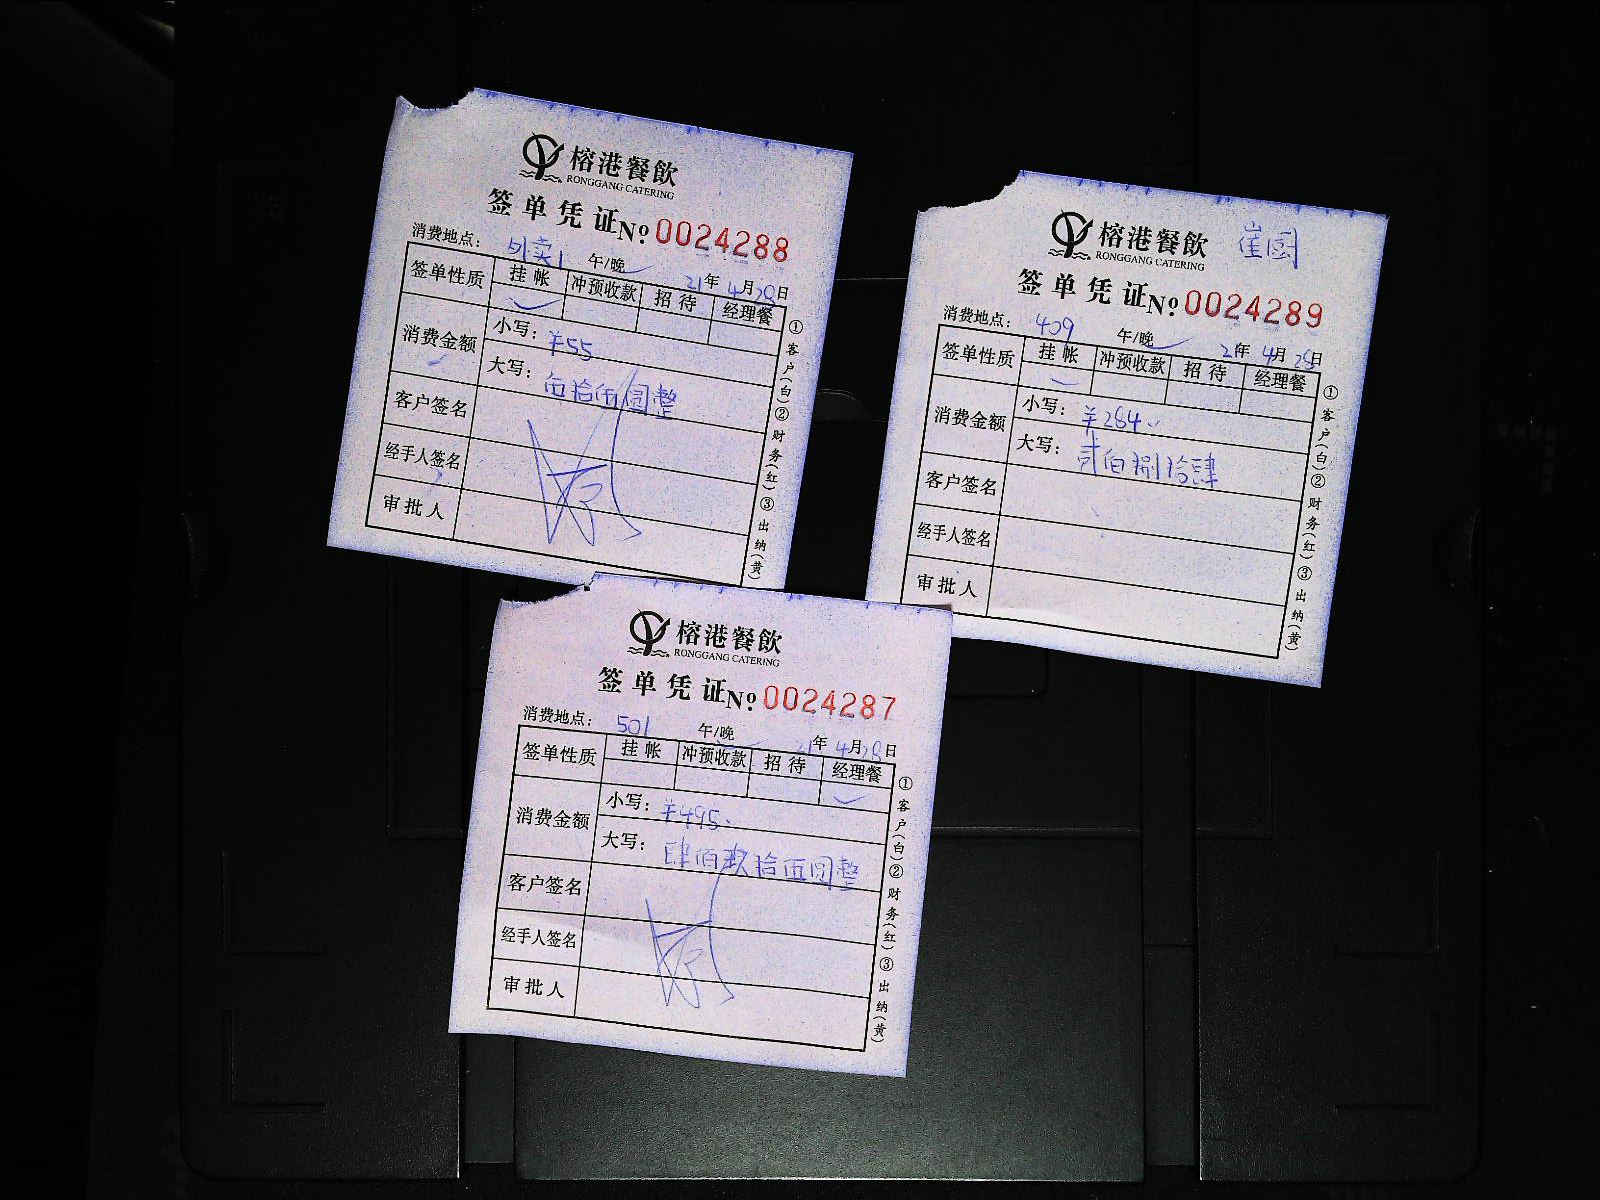 榕港餐飲
RONGGANG CATERING
签单凭证 No: 0024288
消费地点: 外卖1 午/晚 21年4月28日
签单性质 挂帐 冲预收款 招待 经理餐
消费金额 小写: ¥55
大写: 伍拾伍圆整
客户签名
经手人签名
审批人
①客户(白)②财务(红)③出纳(黄)
榕港餐飲
RONGGANG CATERING
签单凭证 No: 0024289
消费地点: 409 午/晚 21年4月28日
签单性质 挂帐 冲预收款 招待 经理餐
消费金额 小写: ¥284
大写: 贰佰捌拾肆
客户签名
经手人签名
审批人
①客户(白)②财务(红)③出纳(黄)
榕港餐飲
RONGGANG CATERING
签单凭证 No: 0024287
消费地点: 501 午/晚 21年4月28日
签单性质 挂帐 冲预收款 招待 经理餐
消费金额 小写: ¥495.
大写: 肆佰玖拾伍圆整
客户签名
经手人签名
审批人
①客户(白)②财务(红)③出纳(黄)